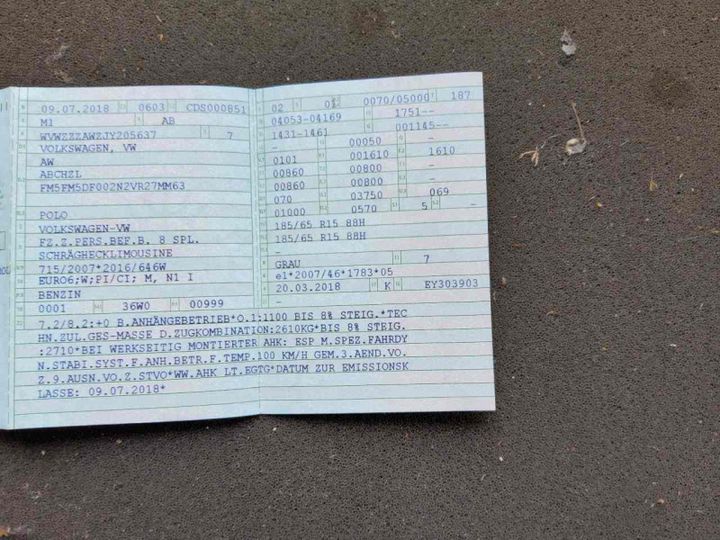 09.07.2018 0603 CDS000851
M1 AB
WVWZZZAWZJY205637 7
VOLKSWAGEN, VW
AW
ABCHZL
FM5FM5DF002N2VR27MM63
POLO
VOLKSWAGEN-VW
FZ.Z.PERS.BEF.B. 8 SPL.
SCHRÄGHECKLIMOUSINE
715/2007*2016/646W
EURO6;W;PI/CI; M, N1 I
BENZIN
0001 36W0 00999
02 0070/05000 187
04053-04169 1751--
1431-1461 001145--
- 00050 -
0101 001610 1610
00860 00800 -
00860 00800 -
070 03750 069
01000 0570 5 -
185/65 R15 88H
185/65 R15 88H
-
-
GRAU 7
e1*2007/46*1783*05
20.03.2018 K EY303903
7.2/8.2:+0 B.ANHÄNGEBETRIEB*O.1:1100 BIS 8% STEIG.*TEC
HN.ZUL.GES-MASSE D.ZUGKOMBINATION:2610KG*BIS 8% STEIG.
:2710*BEI WERKSEITIG MONTIERTER AHK: ESP M.SPEZ.FAHRDY
N.STABI.SYST.F.ANH.BETR.F.TEMP.100 KM/H GEM.3.AEND.VO.
Z.9.AUSN.VO.Z.STVO*WW.AHK LT.EGTG*DATUM ZUR EMISSIONSK
LASSE: 09.07.2018*